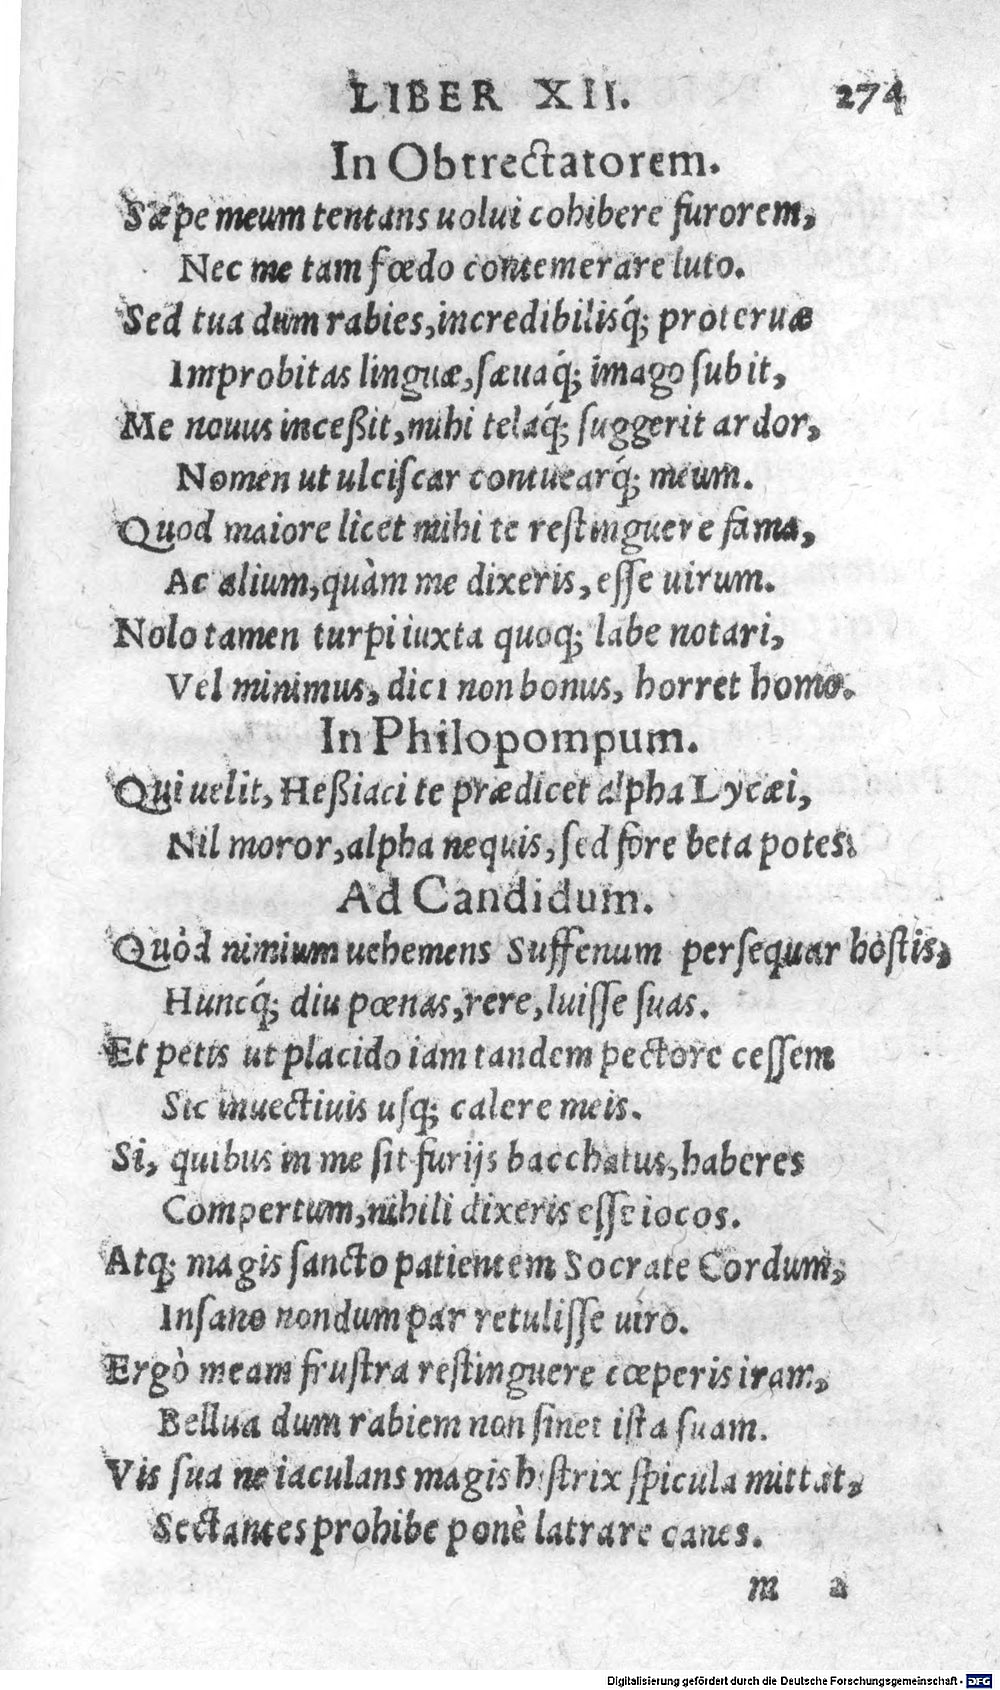 LIBER XII. 274
In Obtrectatorem.
Sæpe meum tentans uolui cohibere furorem,
Nec me tam fœdo contemerare luto.
Sed tua dum rabies, incredibilisq́; proteruæ
Improbitas linguæ, sæuaq́; imago subit,
Me nouus inceßit, mihi telaq́; suggerit ardor,
Nomen ut ulciscar contuearq́; meum.
Quod maiore licet mihi te restinguere fama,
Ac alium, quàm me dixeris, esse uirum.
Nolo tamen turpi iuxta quoq; labe notari,
Vel minimus, dici non bonus, horret homo.
In Philopompum.
Qui uelit, Heßiaci te prædicet alpha Lycæi,
Nil moror, alpha nequis, sed fore beta potes.
Ad Candidum.
Quòd nimium uehemens Suffenum persequar hostis,
Huncq́; diu pœnas, rere, luisse suas.
Et petis ut placido iam tandem pectore cessem
Sic inuectiuis usq; calere meis.
Si, quibus in me sit furijs bacchatus, haberes
Compertum, nihili dixeris esse iocos.
Atq; magis sancto patientem Socrate Cordum,
Insano nondum par retulisse uiro.
Ergò meam frustra restinguere cœperis iram,
Bellua dum rabiem non sinet ista suam.
Vis sua ne iaculans magis histrix spicula mittat,
Sectantes prohibe ponè latrare canes.
m a
Digitalisierung gefördert durch die Deutsche Forschungsgemeinschaft - DFG